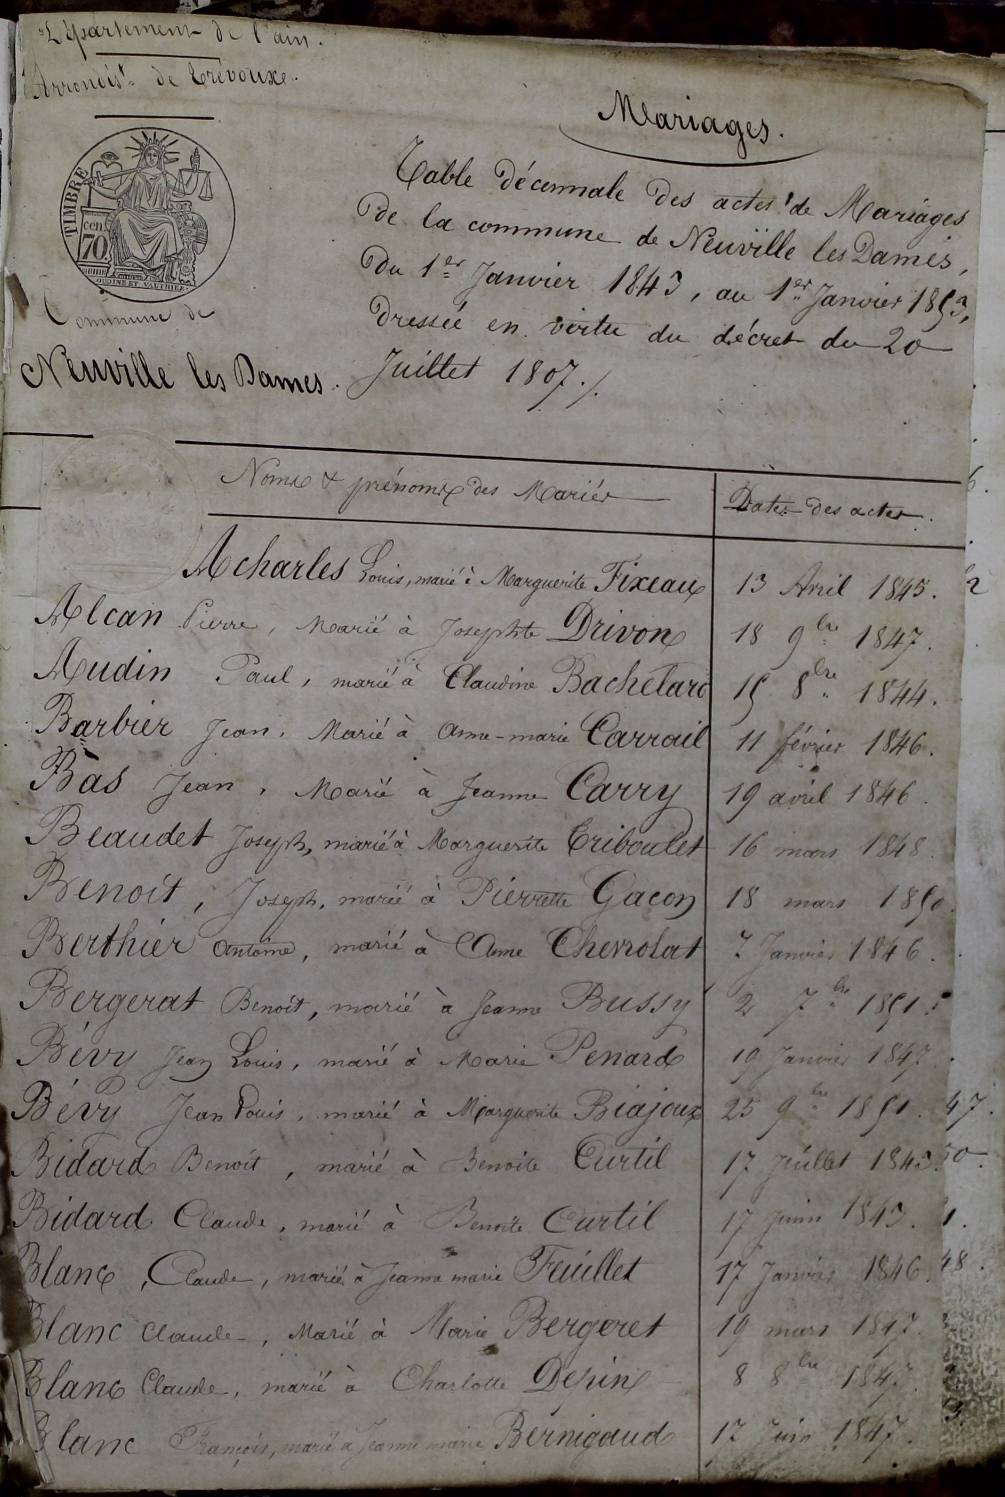 Département de l'ain.
Arrondist. de Trévoux.
Mariages.
TIMBRE
cen.
70
Table décennale des actes de Mariages
de la commune de Neuville les Dames,
Du 1er Janvier 1843, au 1er Janvier 1853,
dressée en vertu du décret du 20
Juillet 1807./.
Commune de
Neuville les Dames.
Noms & prénoms des Mariés
Dates des actes.
Acharles Louis, marié à Marguerite Fixeaux 13 Avril 1845.
Alcan Pierre, Marié à Josephte Drivon 18 9bre 1847.
Audin Paul, marié à Claudine Bachelard 15 8bre 1844.
Barbier Jean, Marié à anne-marie Carrail 11 février 1846.
Bas Jean, Marié à Jeanne Carry 19 avril 1846.
Beaudet Joseph, marié à Marguerite Triboulet 16 mars 1848.
Benoit, Joseph, marié à Pierrette Gacon 18 mars 1850.
Berthier antoine, marié à anne Chevrolat 7 Janvier 1846.
Bergerat Benoît, marié à Jeanne Bussy 2 7bre 1851.
Bévy Jean Louis, marié à Marie Penard 19 Janvier 1847.
Bévy Jean Louis, marié à Marguerite Biajoux 25 9bre 1851.
Bidard Benoît, marié à Benoite Curtil 17 Juillet 1843.
Bidard Claude, marié à Benoite Curtil 17 juin 1843.
Blanc, Claude, marié à Jeanne marie Feuillet 17 Janvier 1846.
Blanc Claude, Marié à Marie Bergeret 19 mars 1847.
Blanc Claude, marié à Charlotte Depin 8 8bre 1847.
Blanc François, marié à Jeanne marie Bernigaud 12 Juin 1847.